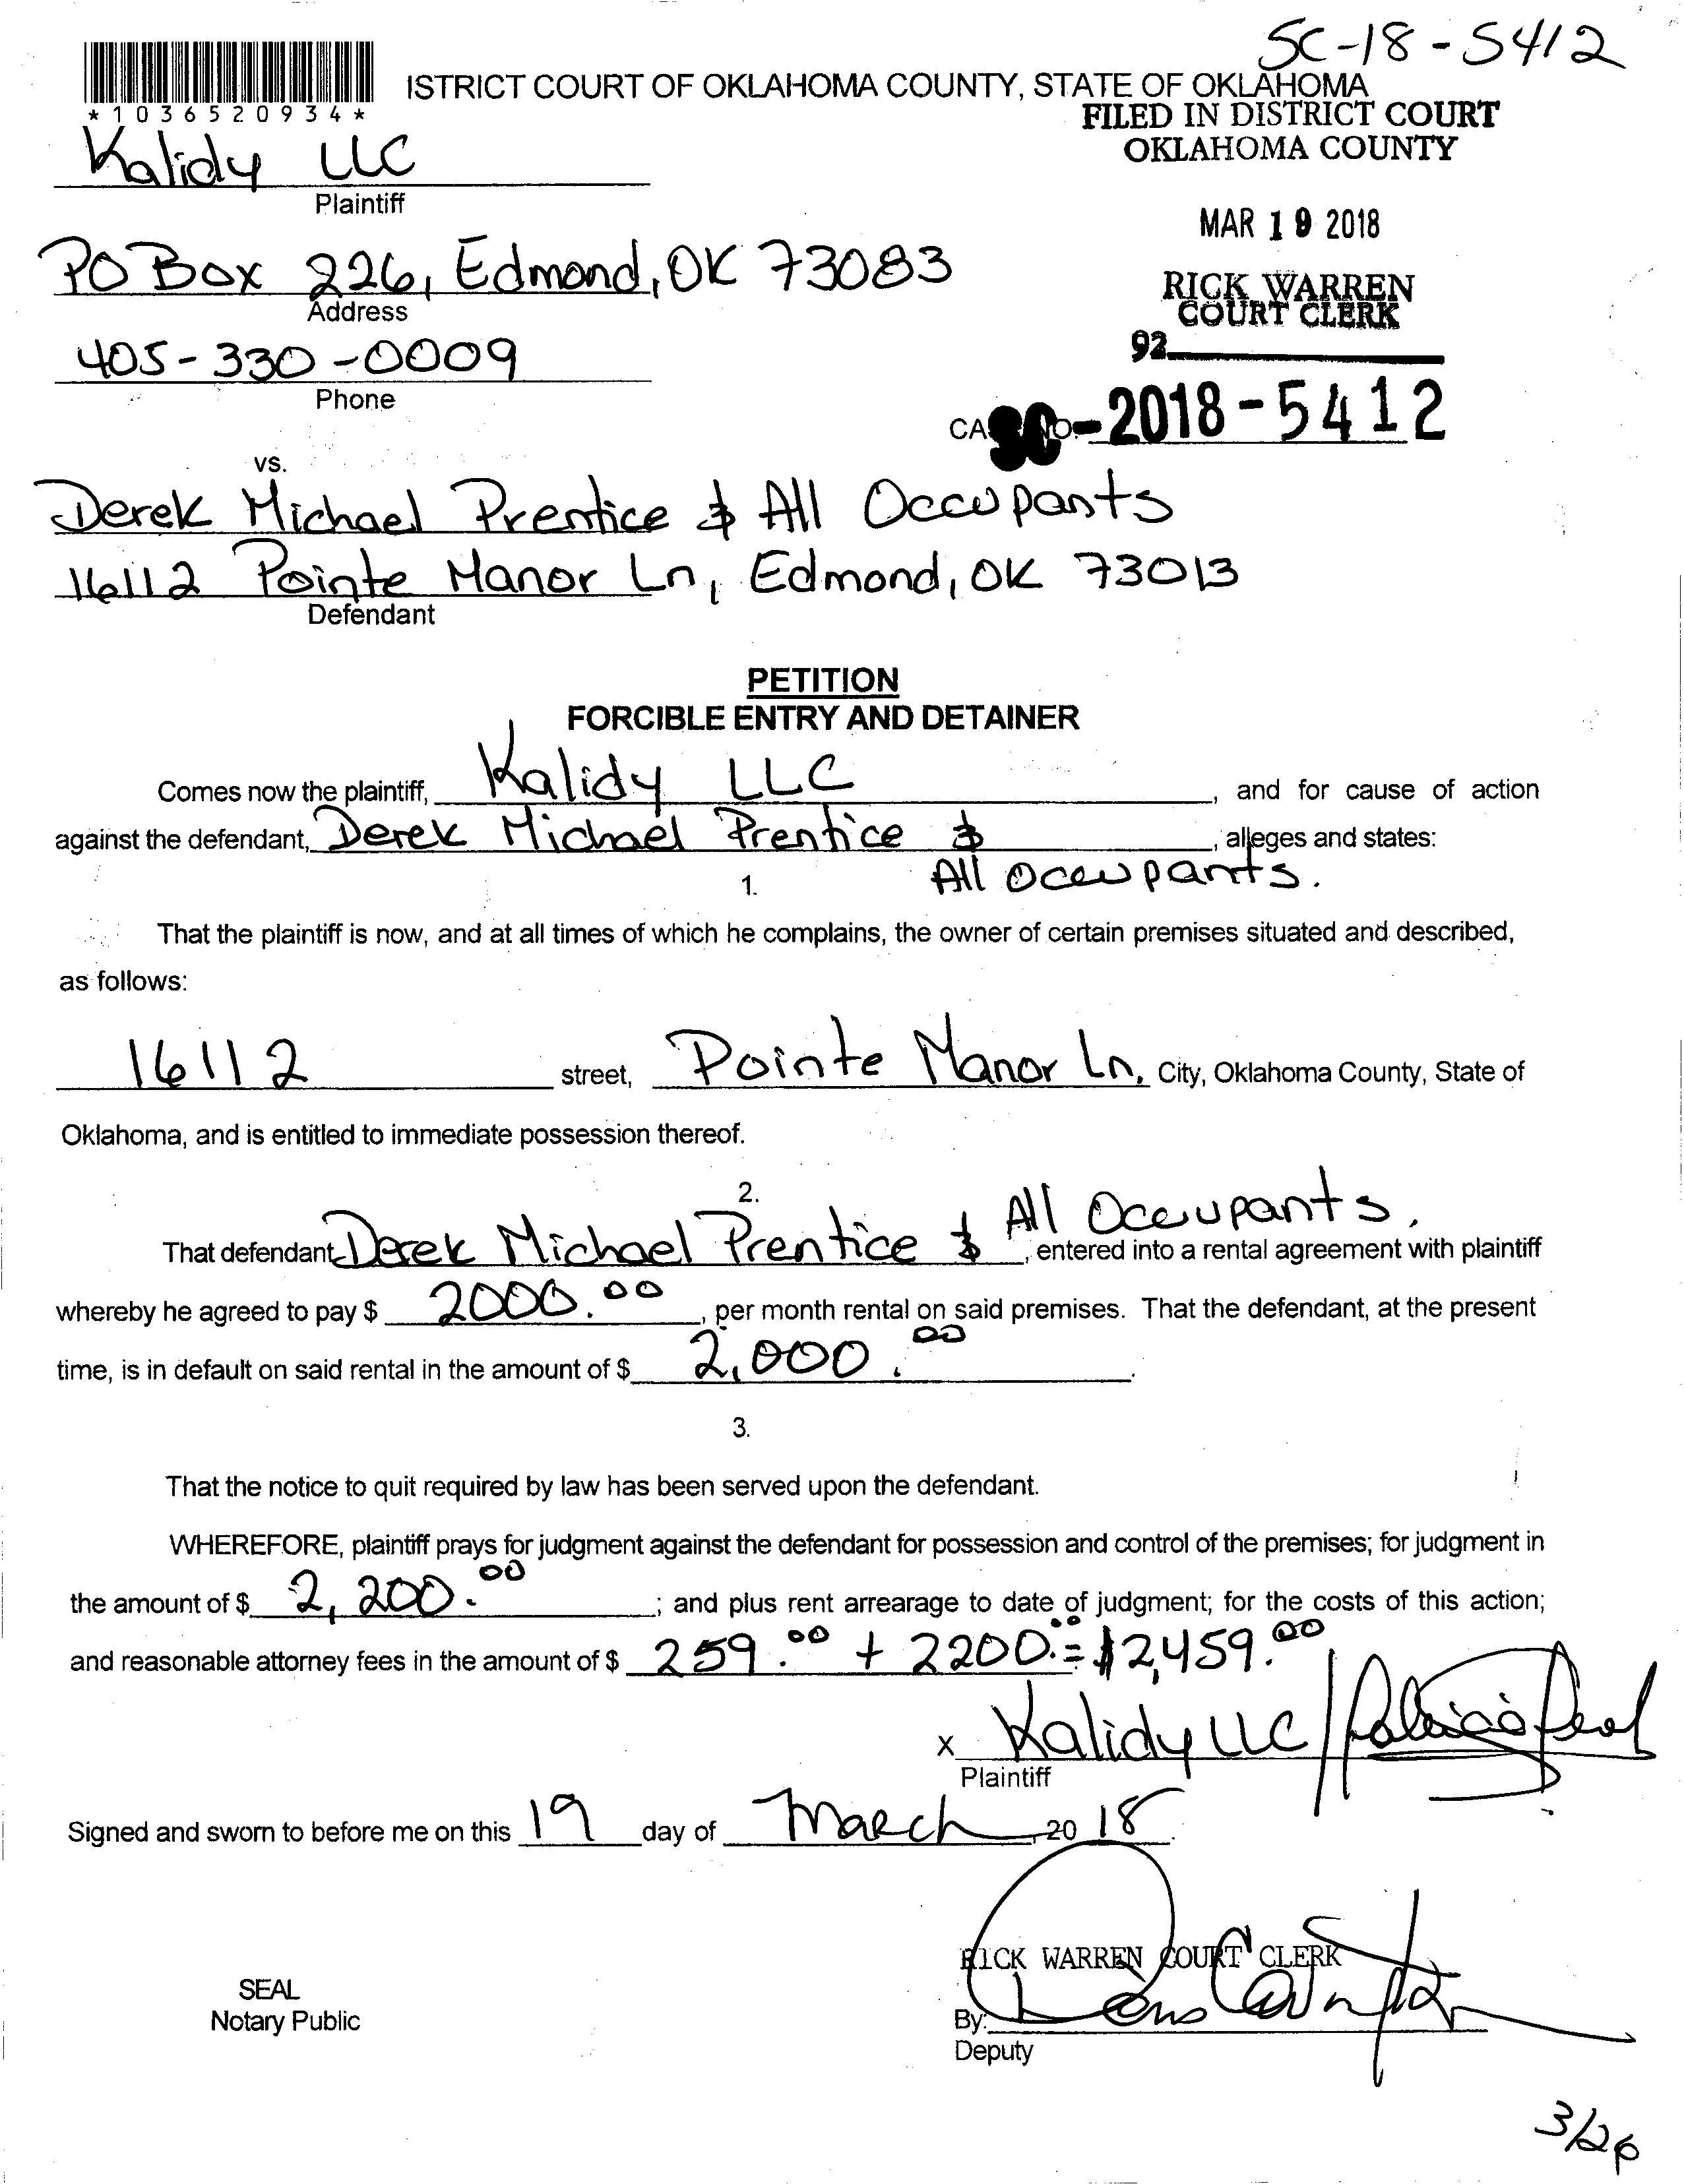 SC-18-5412
ISTRICT COURT OF OKLAHOMA COUNTY, STATE OF OKLAHOMA
*1036520934*
FILED IN DISTRICT COURT
OKLAHOMA COUNTY
Kalidy LLC
Plaintiff
MAR 19 2018
PO Box 226, Edmond, OK 73083
Address
RICK WARREN
COURT CLERK
92
405-330-0009
Phone
CA NO. -2018-5412
vs.
Derek Michael Prentice & All Occupants
16112 Pointe Manor Ln, Edmond, OK 73013
Defendant
PETITION
FORCIBLE ENTRY AND DETAINER
Comes now the plaintiff, Kalidy LLC, and for cause of action
against the defendant, Derek Michael Prentice &, alleges and states:
All Occupants.
1.
That the plaintiff is now, and at all times of which he complains, the owner of certain premises situated and described,
as follows:
16112 street, Pointe Manor Ln. City, Oklahoma County, State of
Oklahoma, and is entitled to immediate possession thereof.
2.
All Occupants.
That defendant Derek Michael Prentice &, entered into a rental agreement with plaintiff
whereby he agreed to pay $ 2000.00, per month rental on said premises. That the defendant, at the present
time, is in default on said rental in the amount of $ 2,000.00.
3.
That the notice to quit required by law has been served upon the defendant.
WHEREFORE, plaintiff prays for judgment against the defendant for possession and control of the premises; for judgment in
the amount of $ 2,200.00; and plus rent arrearage to date of judgment; for the costs of this action;
and reasonable attorney fees in the amount of $ 259.00 + 2200.00 = $2,459.00
X Kalidy LLC /
Plaintiff
Signed and sworn to before me on this 19 day of March, 2018.
RICK WARREN COURT CLERK
SEAL
Notary Public
By:
Deputy
3/26